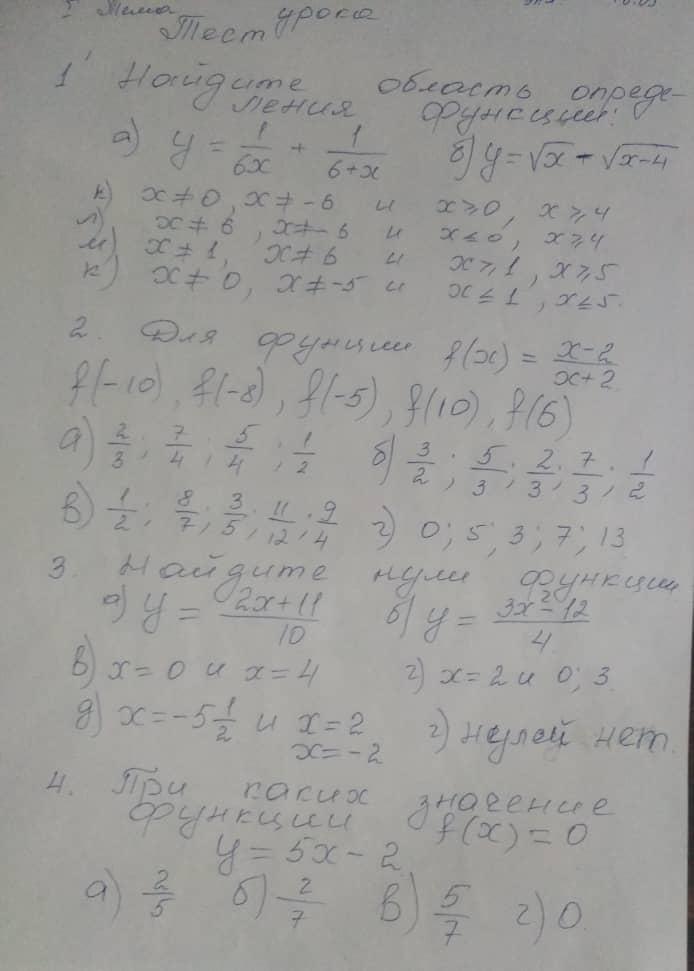 I Тема урока
Тест
1 Найдите область опреде-
ления функции:
а) y = 1/6x + 1/6+x б) y = √x - √x-4
к) x ≠ 0, x ≠ -6 и x ≥ 0, x ≥ 4
л) x ≠ 6, x ≠ -6 и x ≤ 0, x ≥ 4
м) x ≠ 1, x ≠ 6 и x ≥ 1, x ≥ 5
к) x ≠ 0, x ≠ -5 и x ≤ 1, x ≤ 5.
2. Для функции f(x) = x-2/x+2
f(-10), f(-8), f(-5), f(10), f(6)
а) 2/3; 7/4; 5/4; 1/2 б) 3/2; 5/3; 2/3; 7/3; 1/2
в) 1/2; 8/7; 3/5; 11/12; 9/4 г) 0; 5; 3; 7; 13
3. Найдите нули функции
а) y = 2x+11/10 б) y = 3x²-12/4
в) x = 0 и x = 4 г) x = 2 и 0; 3
д) x = -5 1/2 и x = 2 г) нулей нет.
x = -2
4. При каких значение
функции f(x) = 0
y = 5x - 2
а) 2/5 б) 2/7 в) 5/7 г) 0.